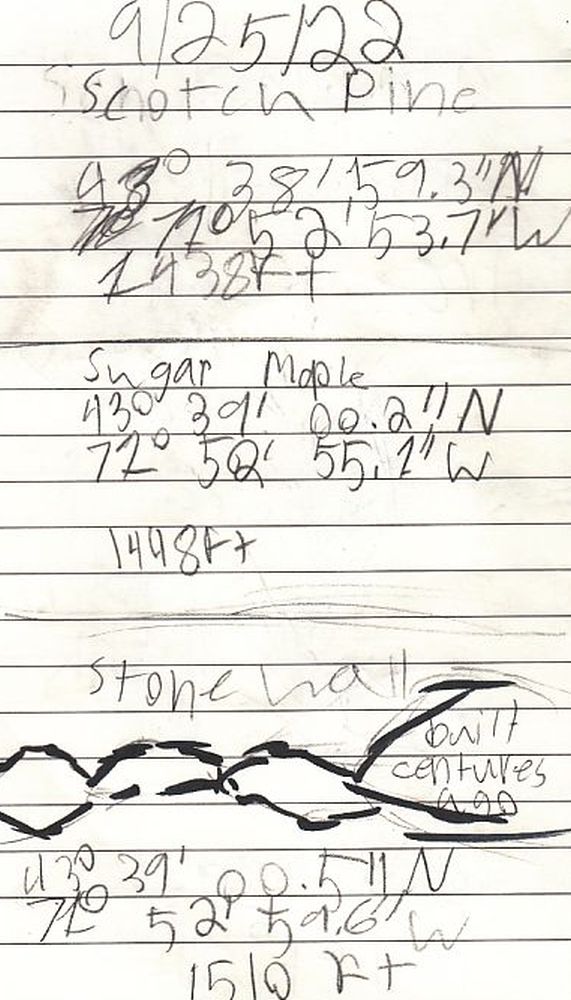 9/25/22
Scotch Pine
43° 38' 59.3" N
71° 52' 53.7" W
1438Ft
Sugar Maple
43° 39' 00.2" N
71° 52' 55.1" W
1448Ft
Stone wall
built
centures
ago
43° 39' 00.5" N
71° 52' 59.6" W
1510 Ft